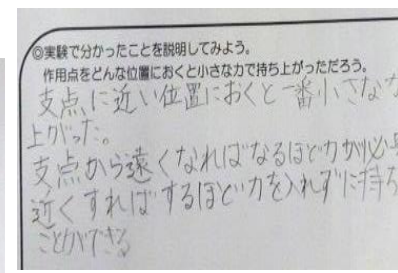 ◎実験で分かったことを説明してみよう。
作用点をどんな位置におくと小さな力で持ち上がっただろう。
支点に近い位置におくと一番小さな力
上がった。
支点から遠くなればなるほど力が必要
近くすればするほど力を入れずに持ち
ことができる